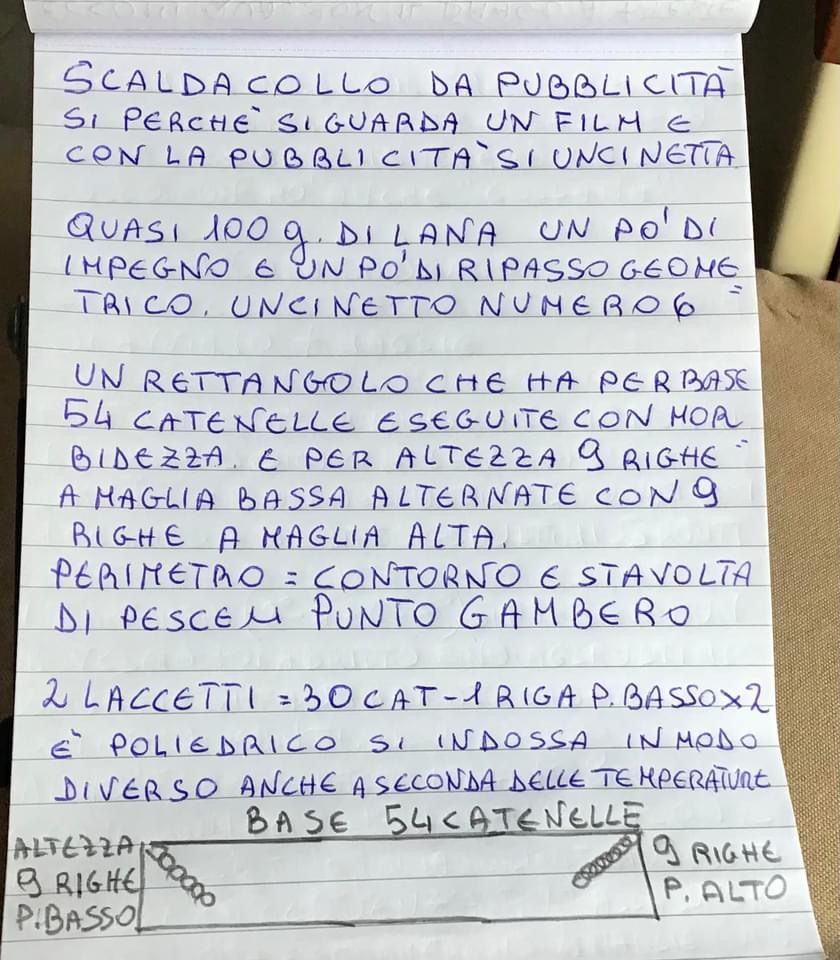 SCALDACOLLO DA PUBBLICITÀ
SI PERCHÈ SI GUARDA UN FILM E
CON LA PUBBLICITÀ SI UNCINETTA
QUASI 100 g. DI LANA UN PO' DI
IMPEGNO E UN PO' DI RIPASSO GEOME=
TRICO. UNCINETTO NUMERO 6
UN RETTANGOLO CHE HA PER BASE
54 CATENELLE ESEGUITE CON MOR=
BIDEZZA. E PER ALTEZZA 9 RIGHE
A MAGLIA BASSA ALTERNATE CON 9
RIGHE A MAGLIA ALTA.
PERIMETRO = CONTORNO E STAVOLTA
DI PUNTO GAMBERO
2 LACCETTI = 30 CAT - 1 RIGA P. BASSO X 2
È POLIEDRICO SI INDOSSA IN MODO
DIVERSO ANCHE A SECONDA DELLE TEMPERATURE
BASE 54 CATENELLE
ALTEZZA
9 RIGHE
P. BASSO
9 RIGHE
P. ALTO